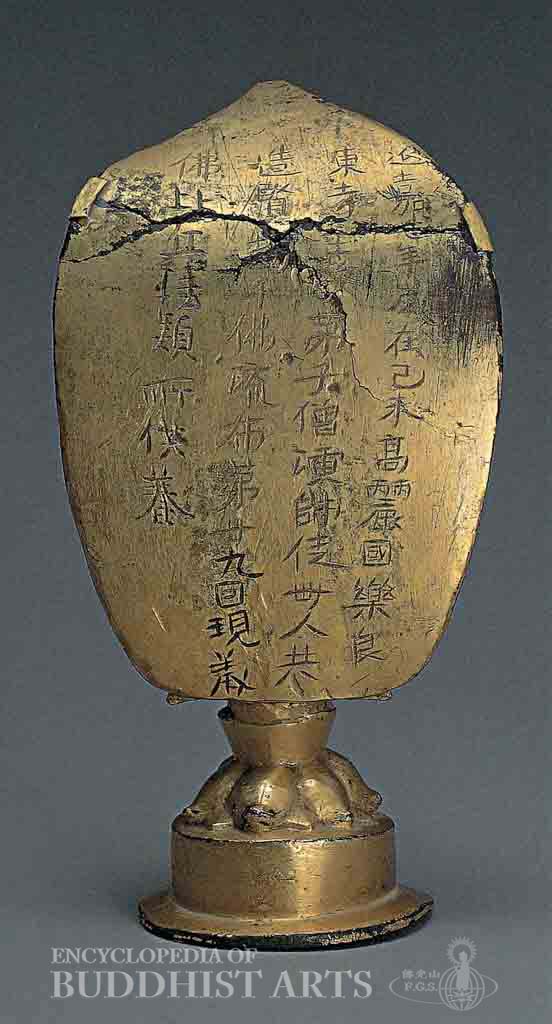 延嘉年歲在己未高麗國樂良
東寺主弟子僧演師徒卌人共
造賢千佛流布苐廿九回現
佛比丘所供養
ENCYCLOPEDIA OF
BUDDHIST ARTS
佛光山
F.G.S.